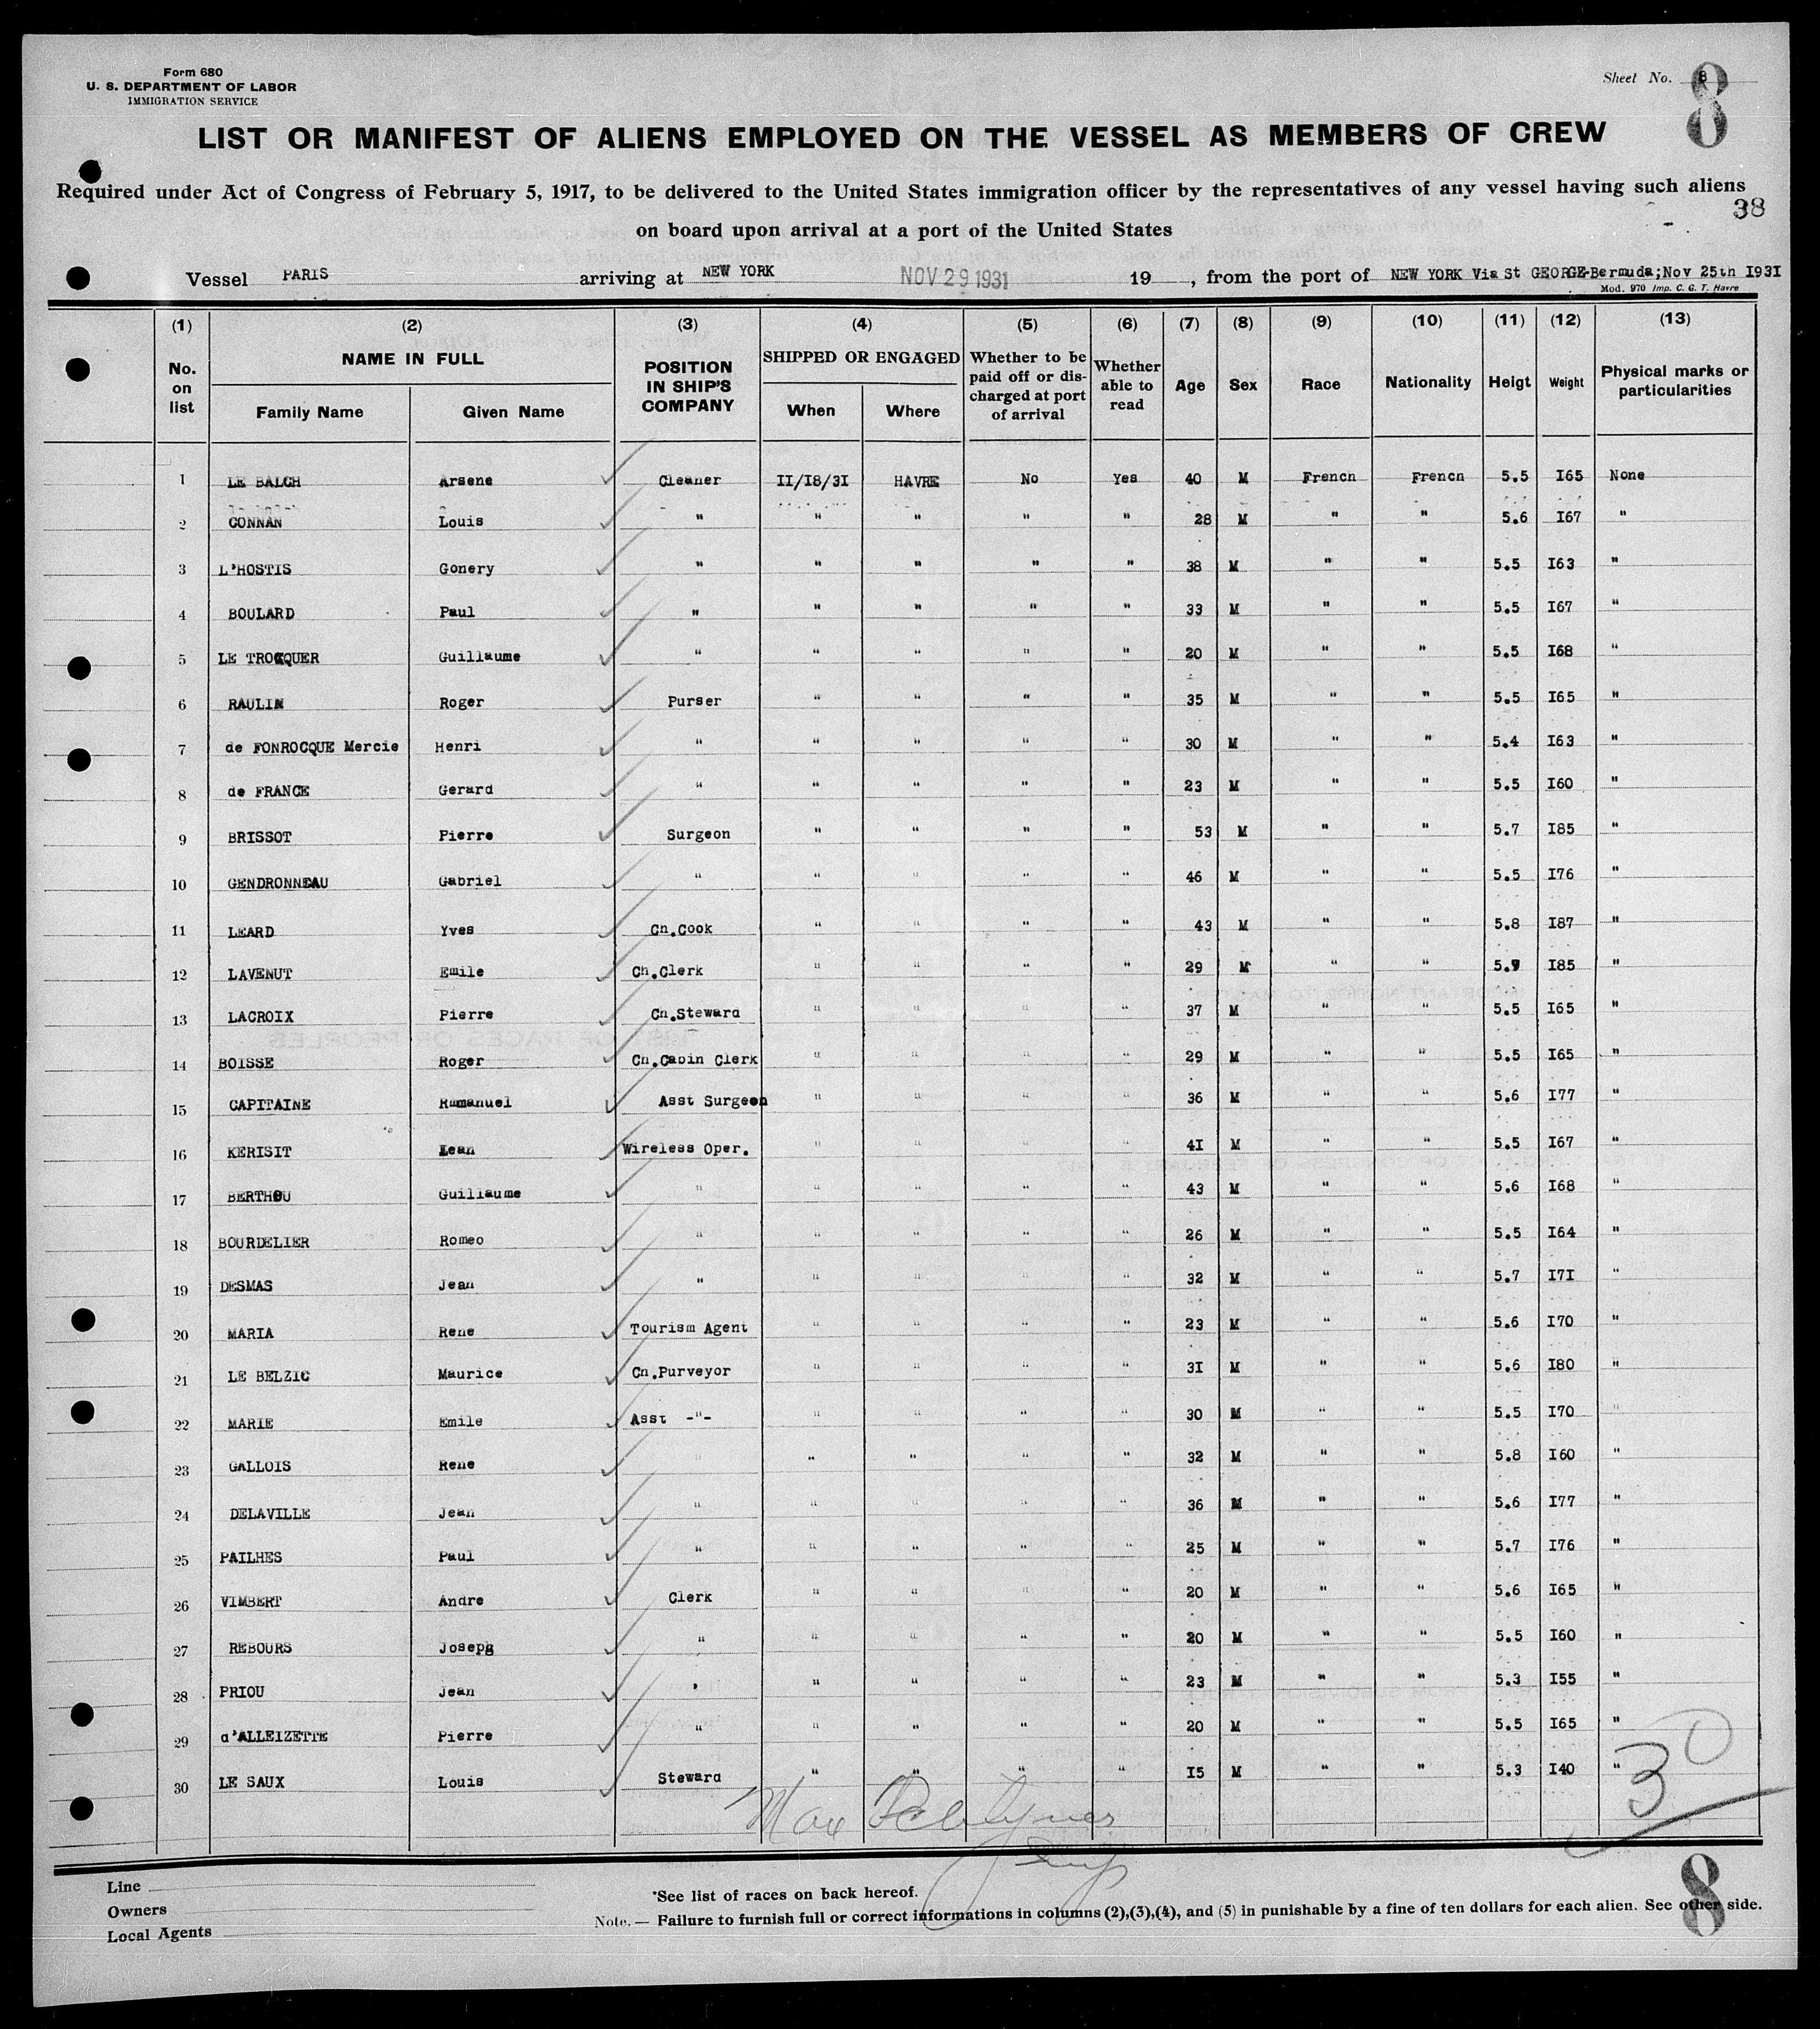 Form 680
U. S. DEPARTMENT OF LABOR
IMMIGRATION SERVICE
Sheet No. 8
8
LIST OR MANIFEST OF ALIENS EMPLOYED ON THE VESSEL AS MEMBERS OF CREW
Required under Act of Congress of February 5, 1917, to be delivered to the United States immigration officer by the representatives of any vessel having such aliens
38
on board upon arrival at a port of the United States
Vessel PARIS arriving at NEW YORK NOV 29 1931 19 , from the port of NEW YORK Via St GEORGE-Bermuda;Nov 25th I93I
Mod. 970 Imp. C. G. T. Havre
(1) (2) (3) (4) (5) (6) (7) (8) (9) (10) (11) (12) (13)
No. on list NAME IN FULL Family Name Given Name POSITION IN SHIP'S COMPANY SHIPPED OR ENGAGED When Where Whether to be paid off or discharged at port of arrival Whether able to read Age Sex Race Nationality Heigt Weight Physical marks or particularities
1 LE BALCH Arsene Cleaner II/I8/3I HAVRE No Yes 40 M French French 5.5 I65 None
2 CONNAN Louis " " " " " 28 M " " 5.6 I67 "
3 L'HOSTIS Gonery " " " " " 38 M " " 5.5 I63 "
4 BOULARD Paul " " " " " 33 M " " 5.5 I67 "
5 LE TROCQUER Guillaume " " " " " 20 M " " 5.5 I68 "
6 RAULIN Roger Purser " " " " 35 M " " 5.5 I65 "
7 de FONROCQUE Mercie Henri " " " " " 30 M " " 5.4 I63 "
8 de FRANCE Gerard " " " " " 23 M " " 5.5 I60 "
9 BRISSOT Pierre Surgeon " " " " 53 M " " 5.7 I85 "
10 GENDRONNEAU Gabriel " " " " " 46 M " " 5.5 I76 "
11 LEARD Yves Ch.Cook " " " " 43 M " " 5.8 I87 "
12 LAVENUT Emile Ch.Clerk " " " " 29 M " " 5.9 I85 "
13 LACROIX Pierre Ch.Steward " " " " 37 M " " 5.5 I65 "
14 BOISSE Roger Ch.Cabin Clerk " " " " 29 M " " 5.5 I65 "
15 CAPITAINE Emmanuel Asst Surgeon " " " " 36 M " " 5.6 I77 "
16 KERISIT Lean Wireless Oper. " " " " 4I M " " 5.5 I67 "
17 BERTHOU Guillaume " " " " " 43 M " " 5.6 I68 "
18 BOURDELIER Romeo " " " " " 26 M " " 5.5 I64 "
19 DESMAS Jean " " " " " 32 M " " 5.7 I7I "
20 MARIA Rene Tourism Agent " " " " 23 M " " 5.6 I70 "
21 LE BELZIC Maurice Ch.Purveyor " " " " 3I M " " 5.6 I80 "
22 MARIE Emile Asst -"- " " " " 30 M " " 5.5 I70 "
23 GALLOIS Rene " " " " " 32 M " " 5.8 I60 "
24 DELAVILLE Jean " " " " " 36 M " " 5.6 I77 "
25 PAILHES Paul " " " " " 25 M " " 5.7 I76 "
26 VIMBERT Andre Clerk " " " " 20 M " " 5.6 I65 "
27 REBOURS Josepg " " " " " 20 M " " 5.5 I60 "
28 PRIOU Jean ' " " " " 23 M " " 5.3 I55 "
29 d'ALLEIZETTE Pierre " " " " " 20 M " " 5.5 I65 "
30 LE SAUX Louis Steward " " " " I5 M " " 5.3 I40 "
30
Max
Line
Owners
Local Agents
*See list of races on back hereof.
Note. — Failure to furnish full or correct informations in columns (2),(3),(4), and (5) in punishable by a fine of ten dollars for each alien. See other side.
8